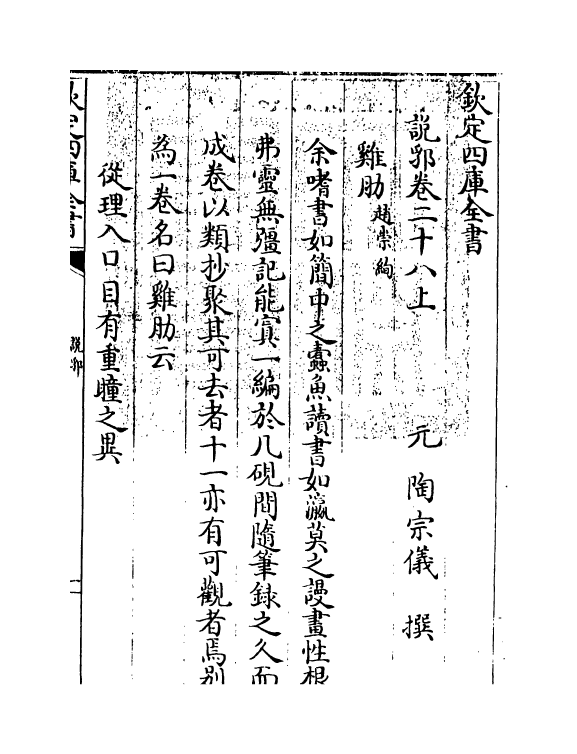 欽定四庫全書
說郛卷二十八上　元　陶宗儀　撰
雞肋 趙崇絢
余嗜書如簡中之蠹魚讀書如瀛莫之謾畫性根
弗靈無彊記能寘一編於几硯間隨筆錄之久而
成卷以類抄聚其可去者十一亦有可觀者焉別
為一卷名曰雞肋云
從理入口目有重瞳之異
欽定四庫全書
說郛
一